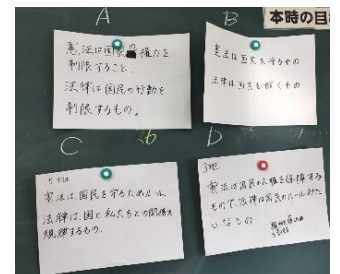 本時の目
A
憲法は国家の権力を
制限すること、
法律は国民の行動を
制限するもの。
B
憲法は国民を守るもの
法律は国民を裁くもの
C
憲法は、国民を守るためのルール。
法律は、国と私たちとの関係を
規律するもの。
D
3班
憲法は国民の人権を保障するもので、
法律は国民のルールみたいなもの